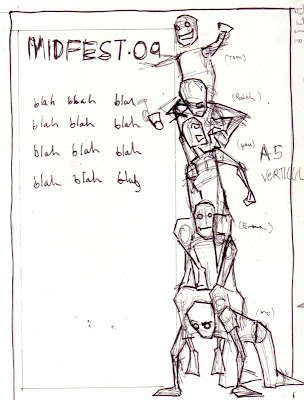 MIDFEST·09
(Tom)
blah blah blah
(Ralph)
blah blah blah
(you)
A5
VERTICAL
blah blah blah
blah blah blah
(Emma)
(mo)